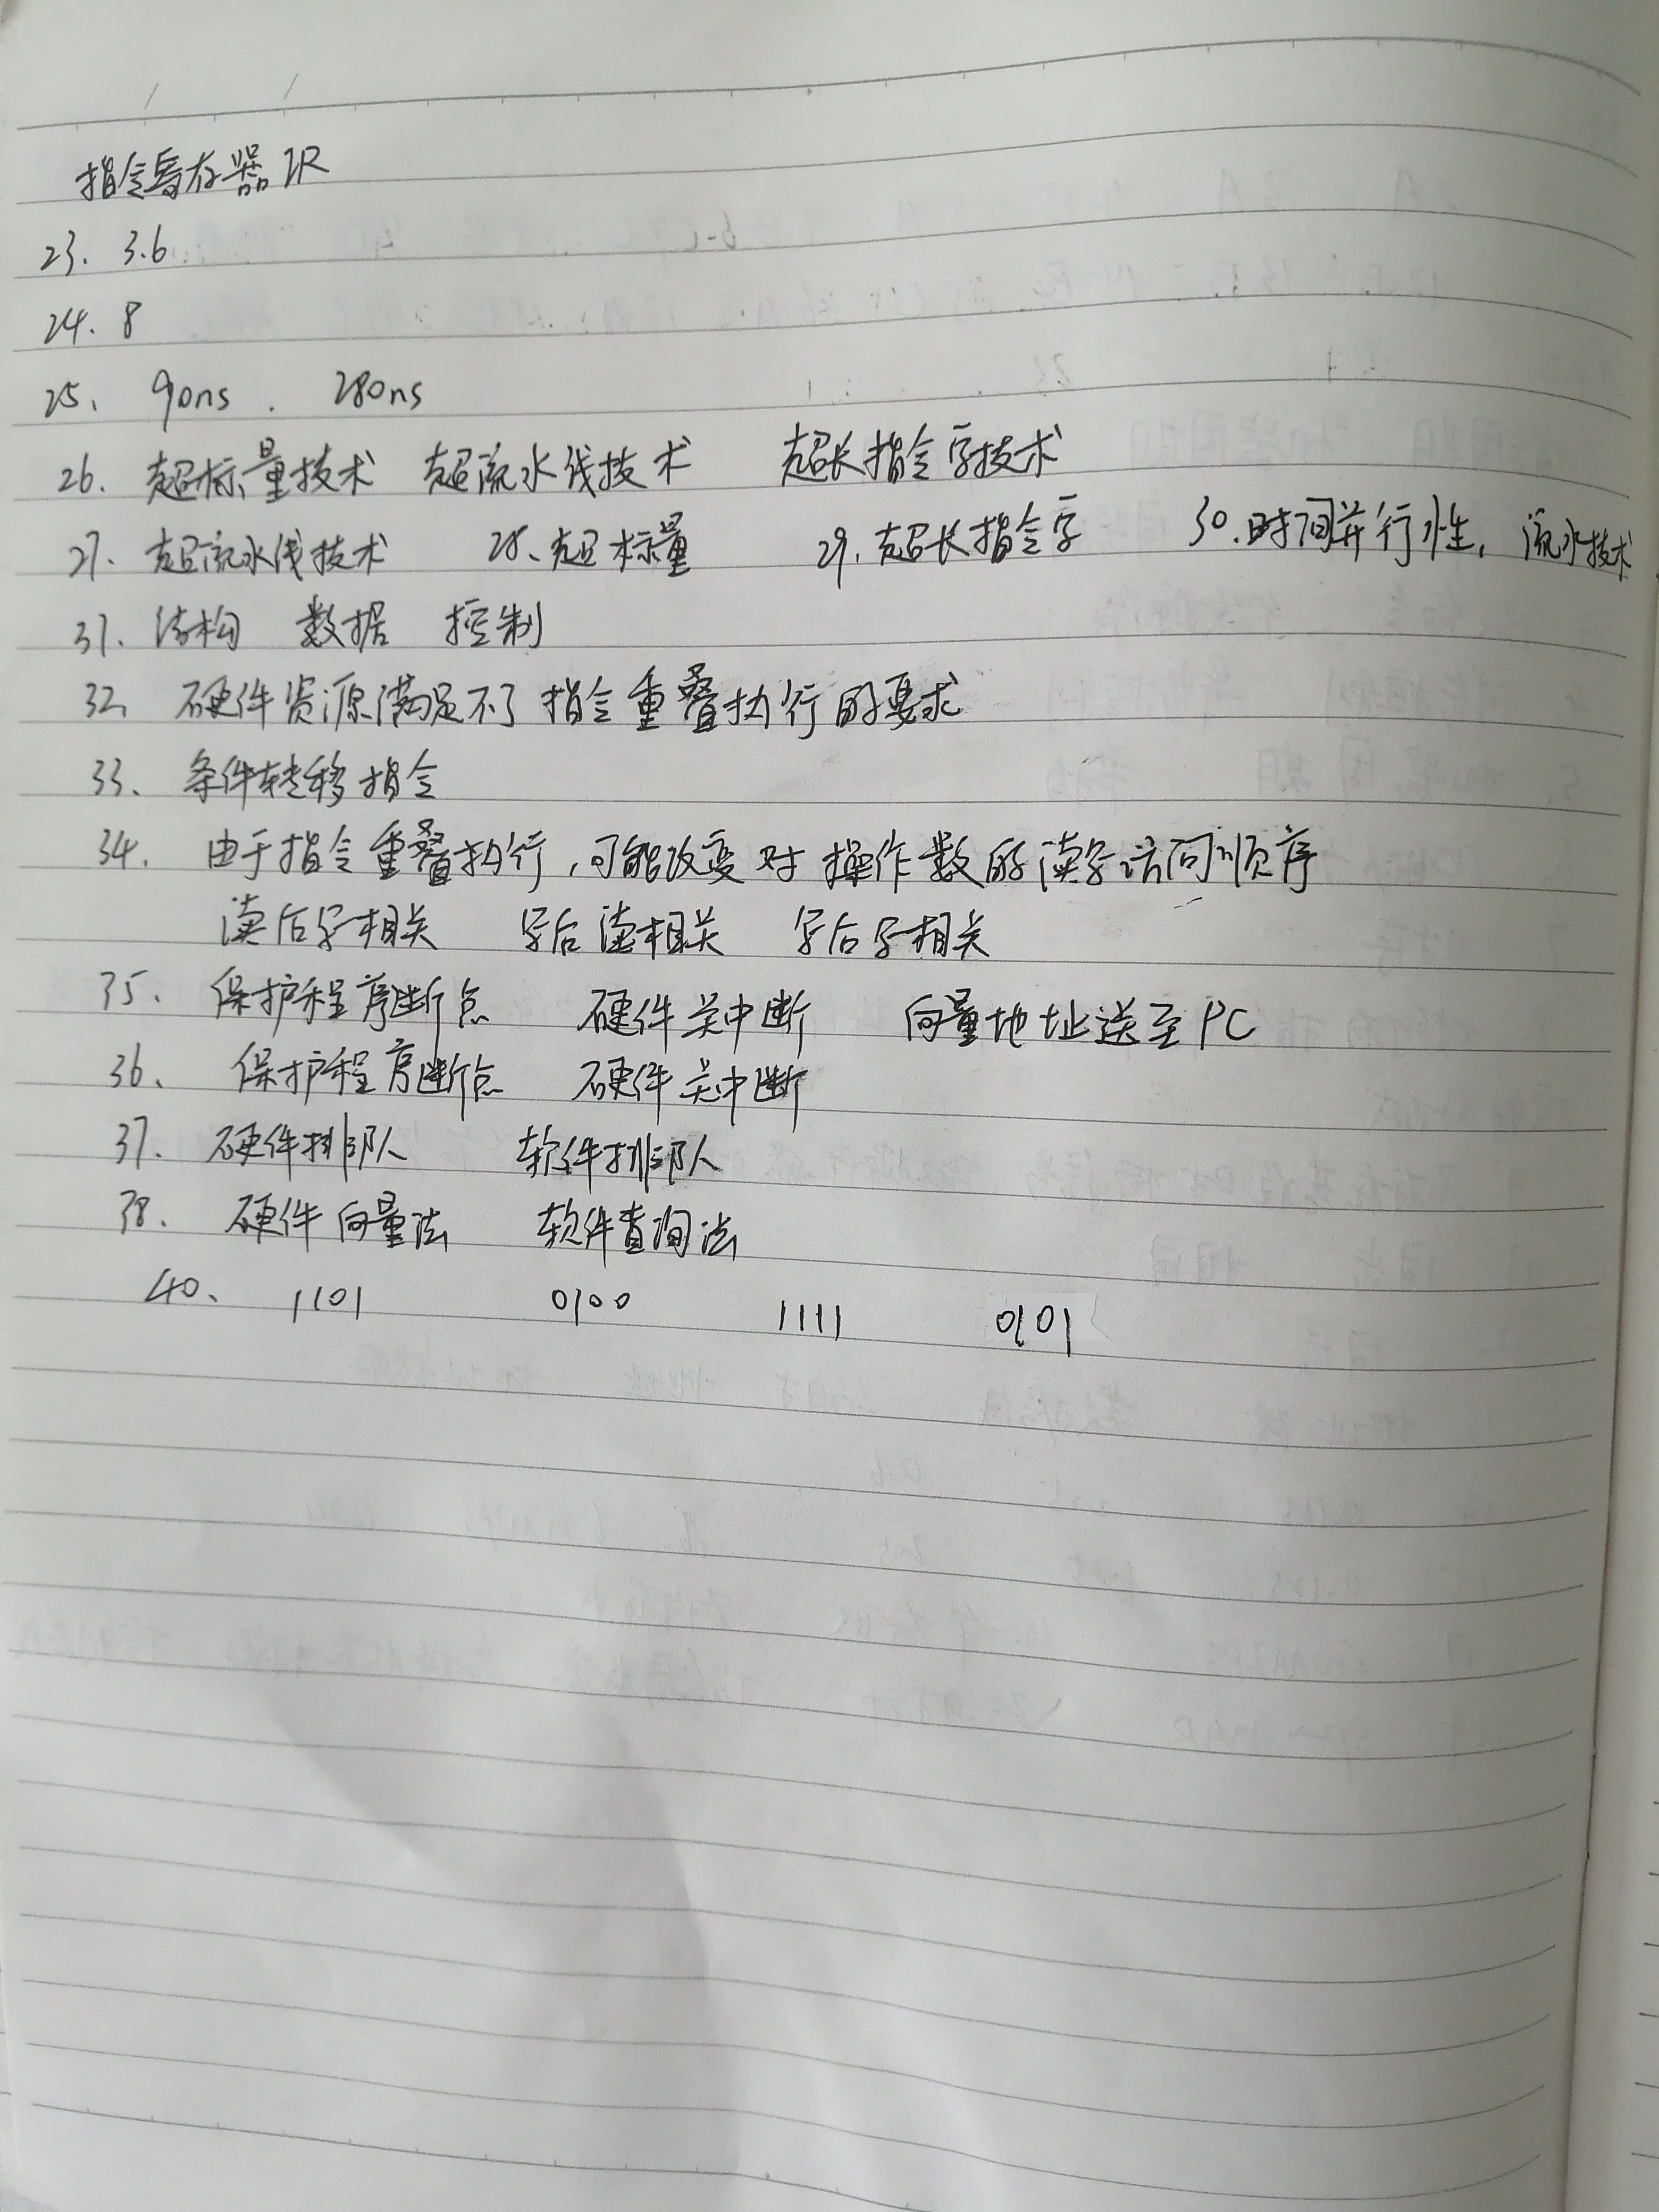 指令寄存器IR
23. 3.6
24. 8
25、 90ns . 280ns
26. 超标量技术 超流水线技术 超长指令字技术
27. 超流水线技术 28、超标量 29. 超长指令字 30.时间并行性, 流水技术
31. 结构 数据 控制
32、 硬件资源满足不了指令重叠执行的要求
33、 条件转移指令
34. 由于指令重叠执行,可能改变对操作数的读写访问顺序
读后写相关 写后读相关 写后写相关
35. 保护程序断点 硬件关中断 向量地址送至PC
36、 保护程序断点 硬件关中断
37. 硬件排队 软件排队
38. 硬件向量法 软件查询法
40、 1101 0100 1111 0101